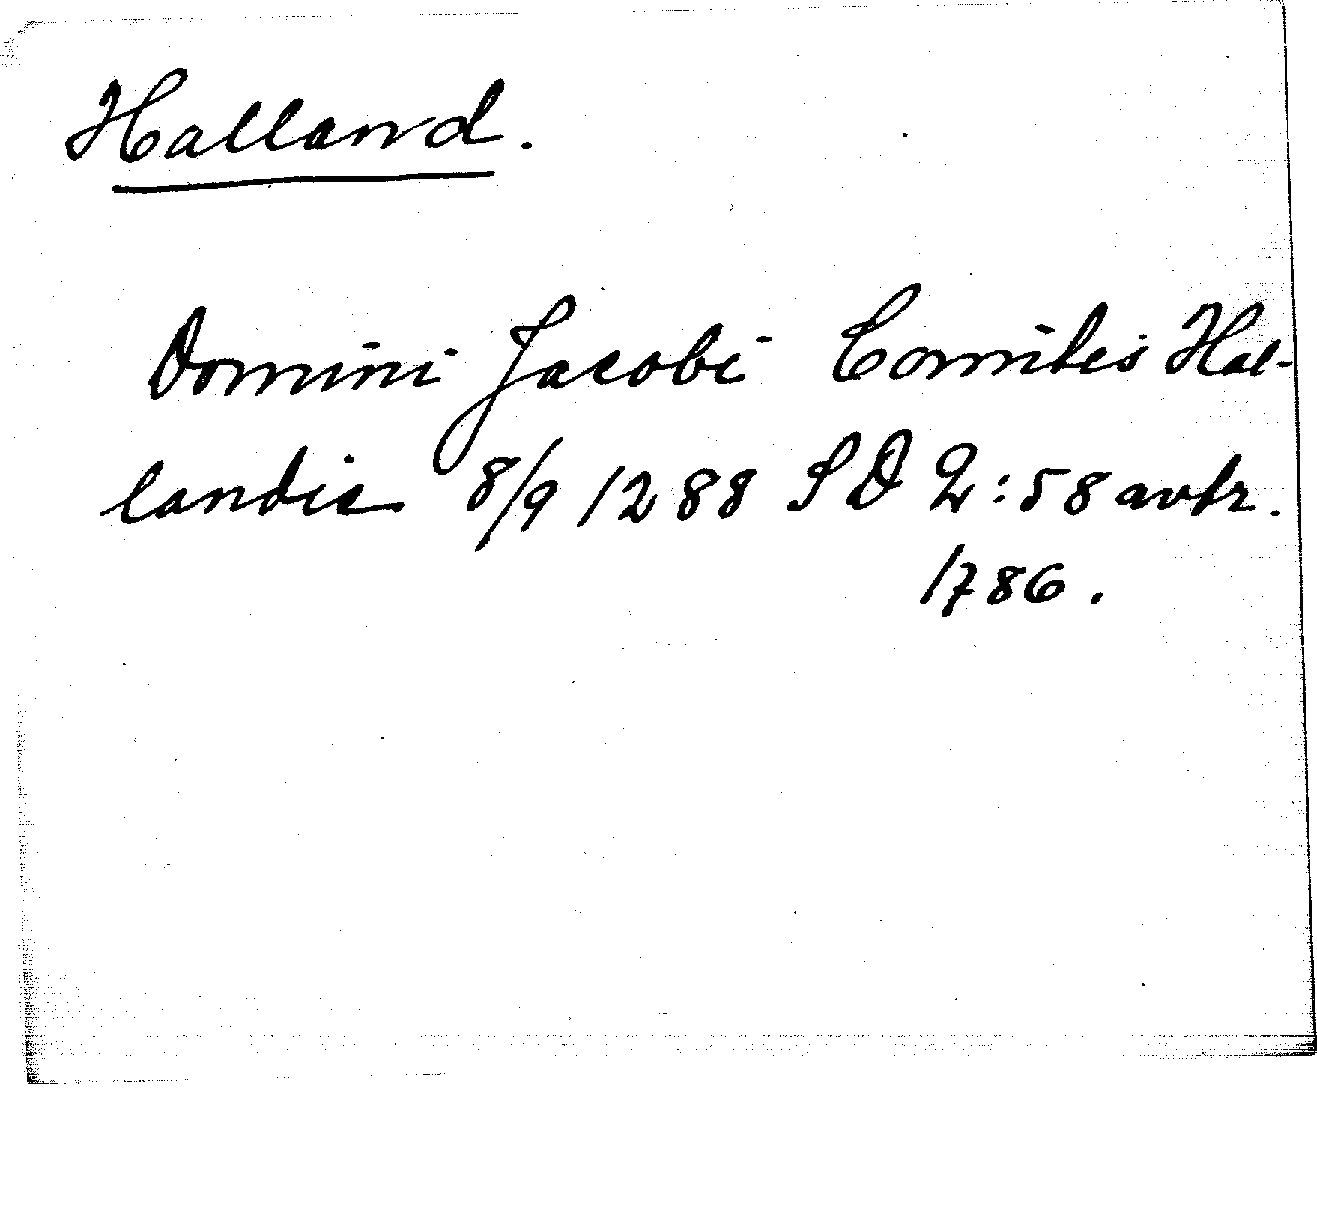 Halland.
Domini Jacobi Comitis Hal-
landie 8/9 1288 SD 2:58 avtr.
1786.